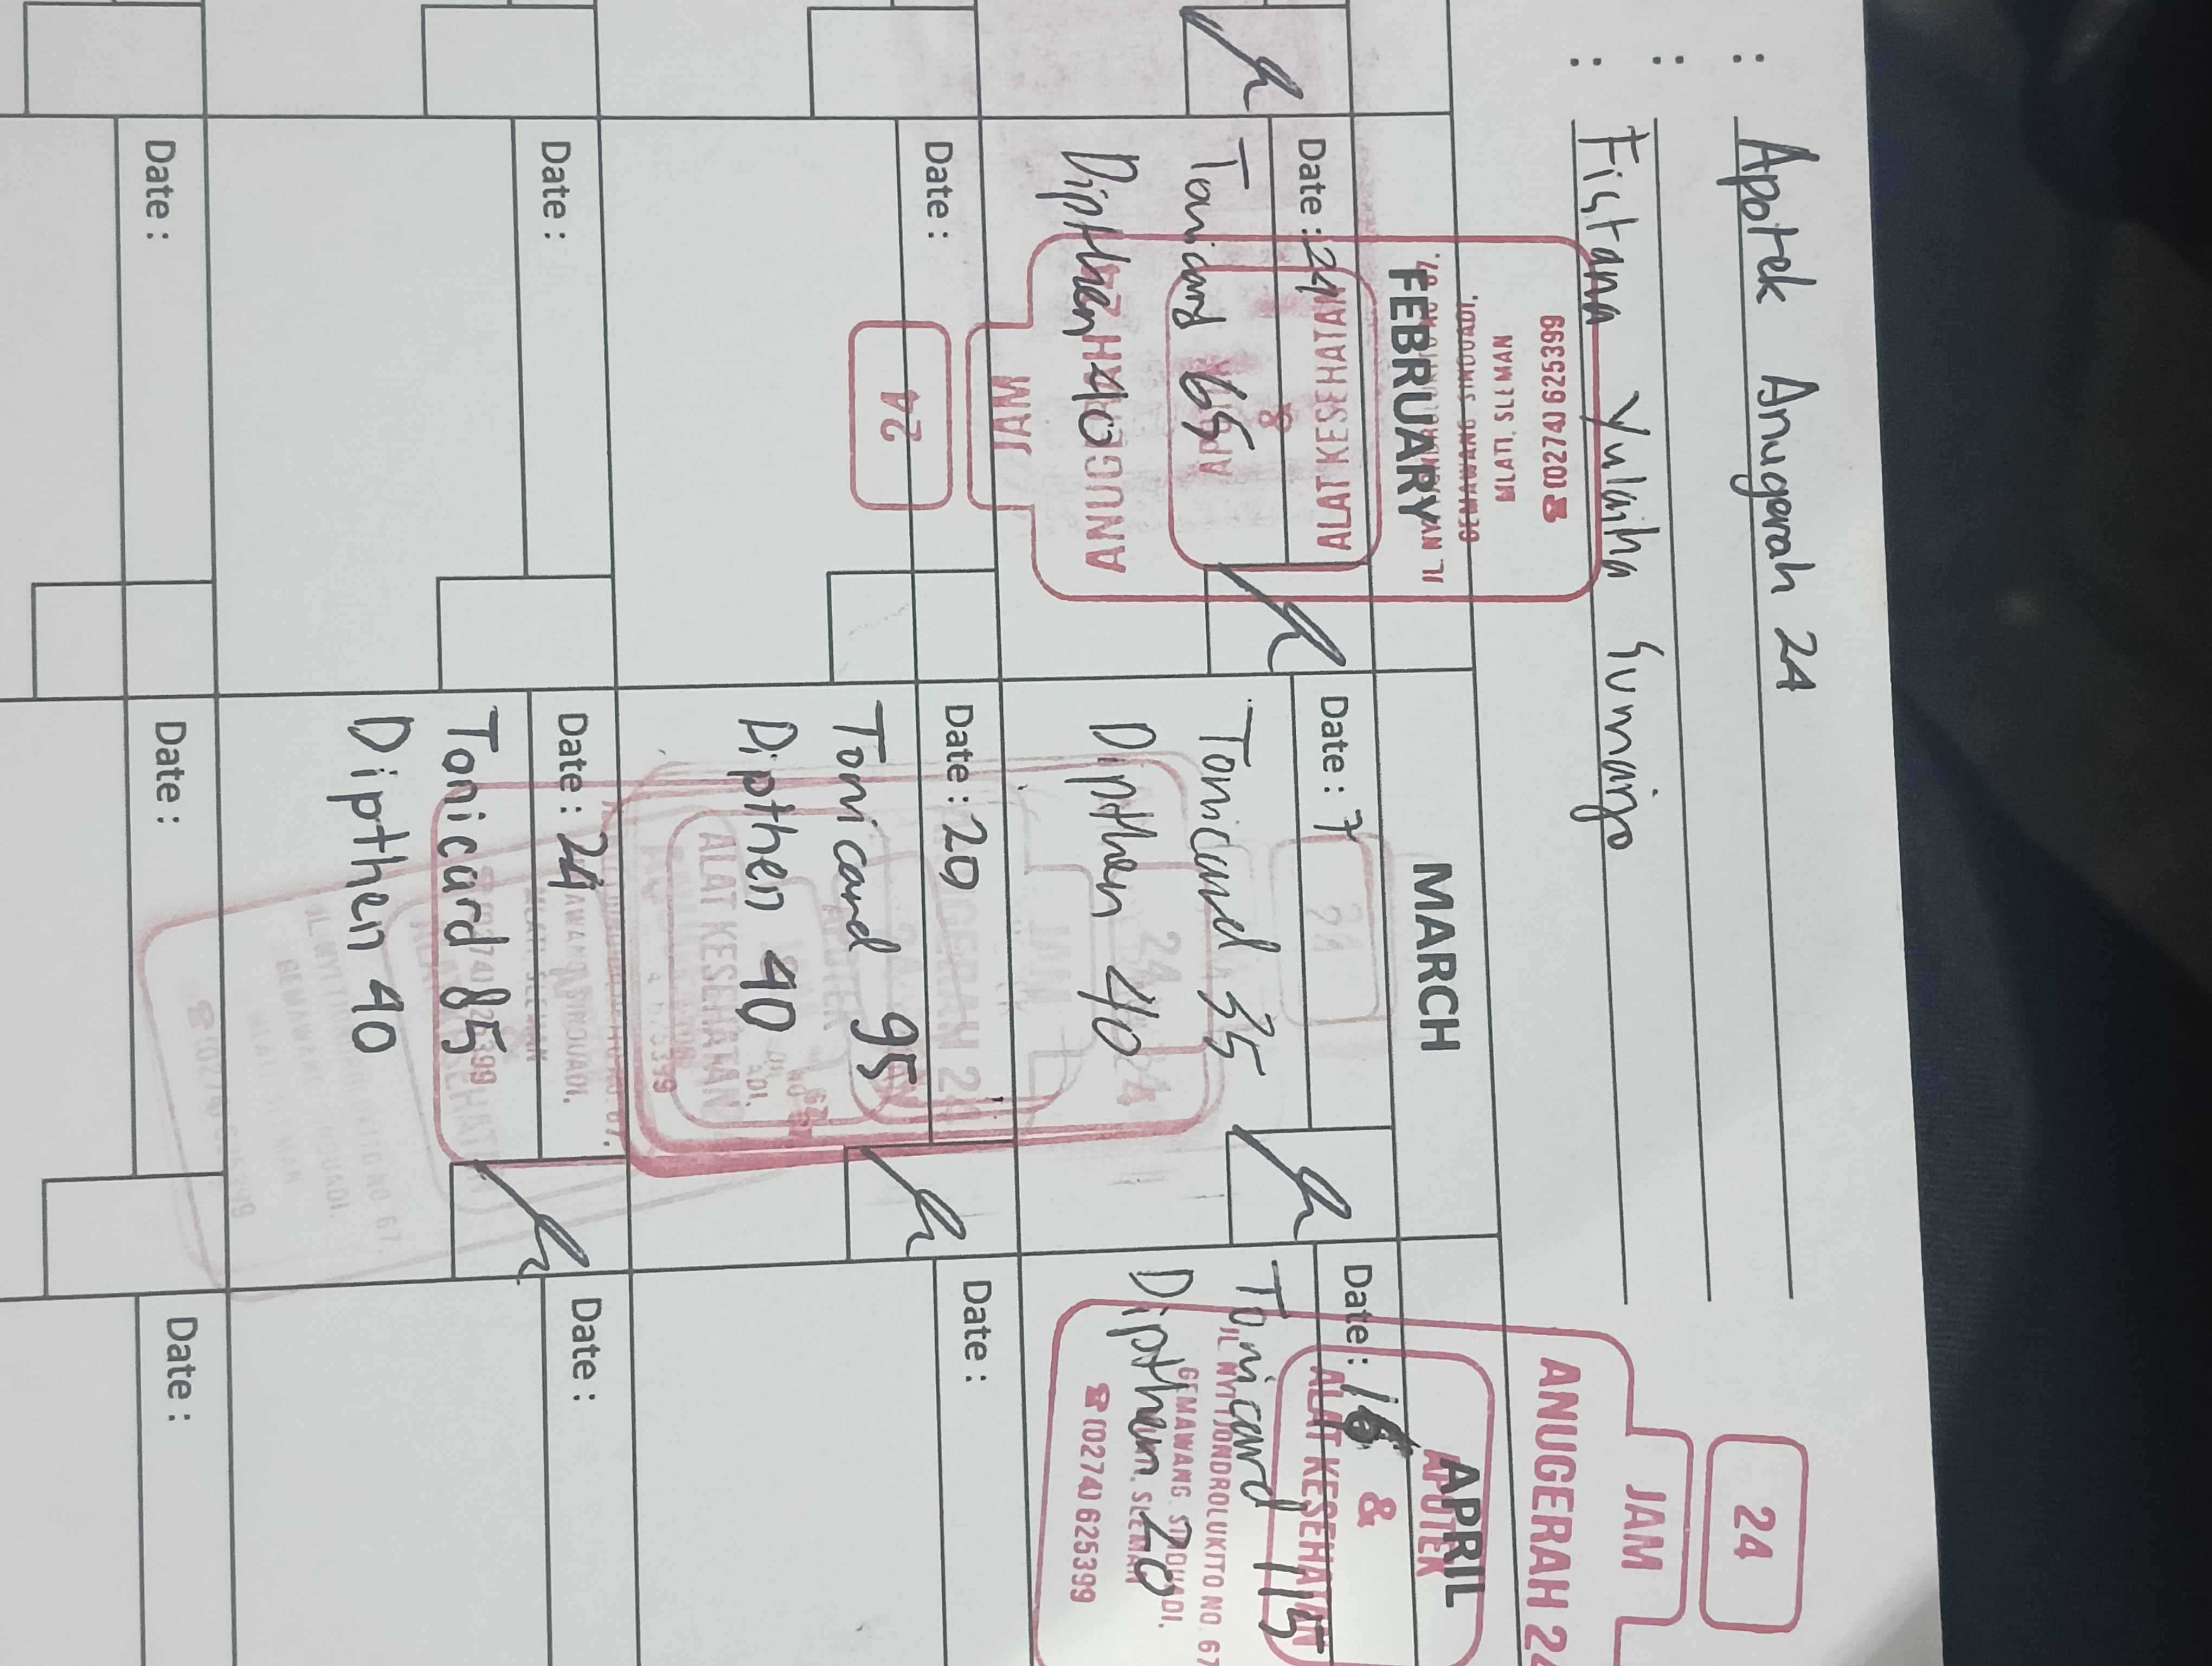 : Apotek Anugerah 24
:
: Fistana Yuliana Sumarjo
FEBRUARY
MARCH
APRIL
Date : 24
Tonicard 65
Dipthen 40
Date : 7
Tonicard 35
Dipthen 40
Date : 16
Tonicard 115
Dipthen 20
Date :
Date : 20
Tonicard 95
Dipthen 40
Date :
Date :
Date : 24
Tonicard 85
Dipthen 40
Date :
Date :
Date :
Date :
24
JAM
ANUGERAH 24
APOTEK
&
ALAT KESEHATAN
JL. NYI TJONDROLUKITO NO. 67
GEMAWANG, SINDUADI,
SLEMAN
☎ (0274) 625399
24
JAM
ANUGERAH 24
&
ALAT KESEHATAN
GEMAWANG SINDUADI,
MLATI, SLEMAN
☎ (0274) 625399
24
JAM
ALAT KESEHATAN